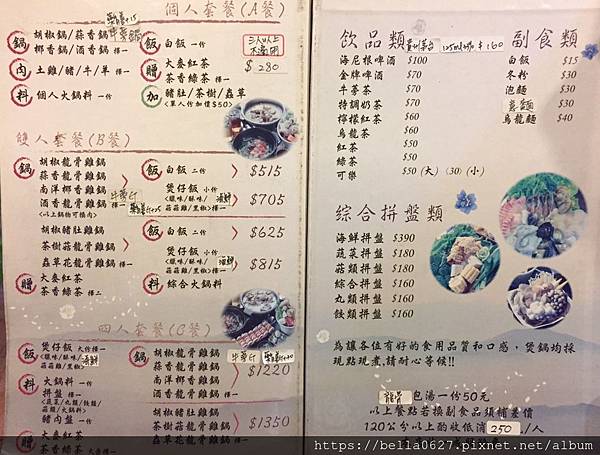 個人套餐(A餐)
鍋 胡椒鍋/蒜香鍋
椰香鍋/酒香鍋 擇一
肉 土雞/豬/牛/羊 擇一
料 個人火鍋料 一份
飯 白飯 一份
三人以上不適用
贈 大麥紅茶
茶香綠茶 擇一
$280
加 豬肚/茶樹/蟲草
<單人份加價$50>
雙人套餐(B餐)
鍋 胡椒龍骨雞鍋
蒜香龍骨雞鍋
南洋椰香雞鍋
酒香龍骨雞鍋 擇一
<以上鍋物可換肉>
飯 白飯 二份
$515
煲仔飯 小份
<臘味/酥味/
菇菇雞/黑椒> 擇一
$705
胡椒豬肚雞鍋
茶樹菇龍骨雞鍋
蟲草花龍骨雞鍋 擇一
飯 白飯 二份
$625
煲仔飯 小份
<臘味/酥味/
菇菇雞/黑椒> 擇一
$815
贈 大麥紅茶
茶香綠茶 擇二
料 綜合火鍋料
四人套餐(C餐)
飯 煲仔飯 大份擇一
<臘味/酥味/
菇菇雞/黑椒>
料 火鍋料 一份
拼盤 一份
<蔬菜/丸類/餃類/
菇類/火鍋料>
豬肉盤 一份
贈 大麥紅茶
茶香綠茶
鍋 胡椒龍骨雞鍋
蒜香龍骨雞鍋
南洋椰香雞鍋
酒香龍骨雞鍋 擇一
$1220
胡椒豬肚雞鍋
茶樹菇龍骨雞鍋
蟲草花龍骨雞鍋 擇一
$1350
飲品類
海尼根啤酒 $100
金牌啤酒 $70
牛蒡茶 $70
特調奶茶 $70
檸檬紅茶 $60
烏龍茶 $60
紅茶 $50
綠茶 $50
可樂 $50 (大) (30) (小)
副食類
白飯 $15
冬粉 $30
泡麵 $30
意麵 $30
烏龍麵 $40
綜合拼盤類
海鮮拼盤 $390
蔬菜拼盤 $180
菇類拼盤 $180
綜合拼盤 $160
丸類拼盤 $160
餃類拼盤 $160
為讓各位有好的食用品質和口感,煲鍋均採
現點現煮,請耐心等候!!
龍骨 包湯一份50元
以上餐點若換副食品須補差價
120公分以上酌收低消 250 /人
https://bella0627.pixnet.net/album